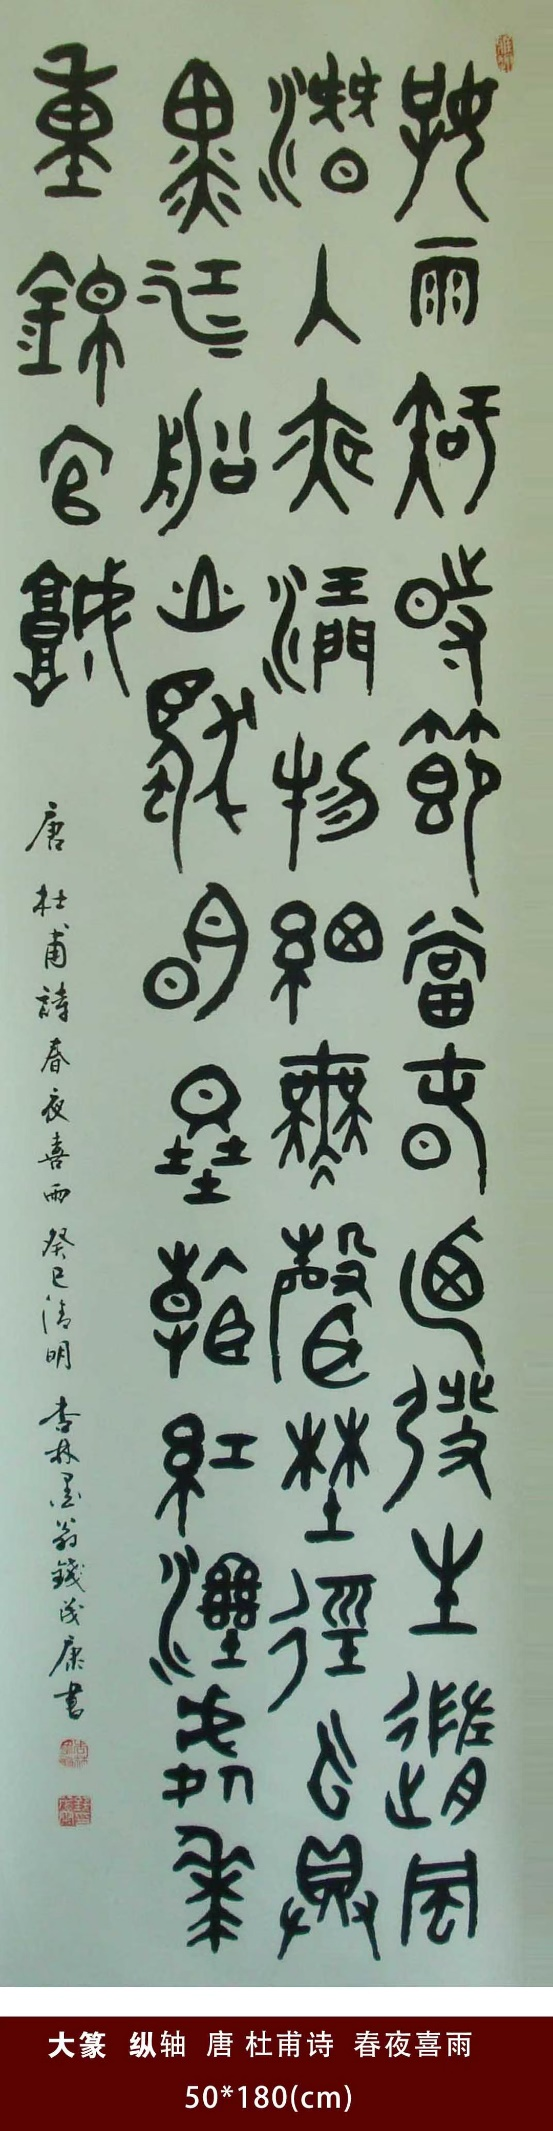 好雨知時節當春迺發生隨風
潛入夜潤物細無聲埜徑云俱
黑江船火獨明曉看紅濕處華
重錦官城
唐杜甫詩春夜喜雨 癸巳清明 杏林墨翁錢成康書
大篆 纵轴 唐 杜甫诗 春夜喜雨
50*180(cm)